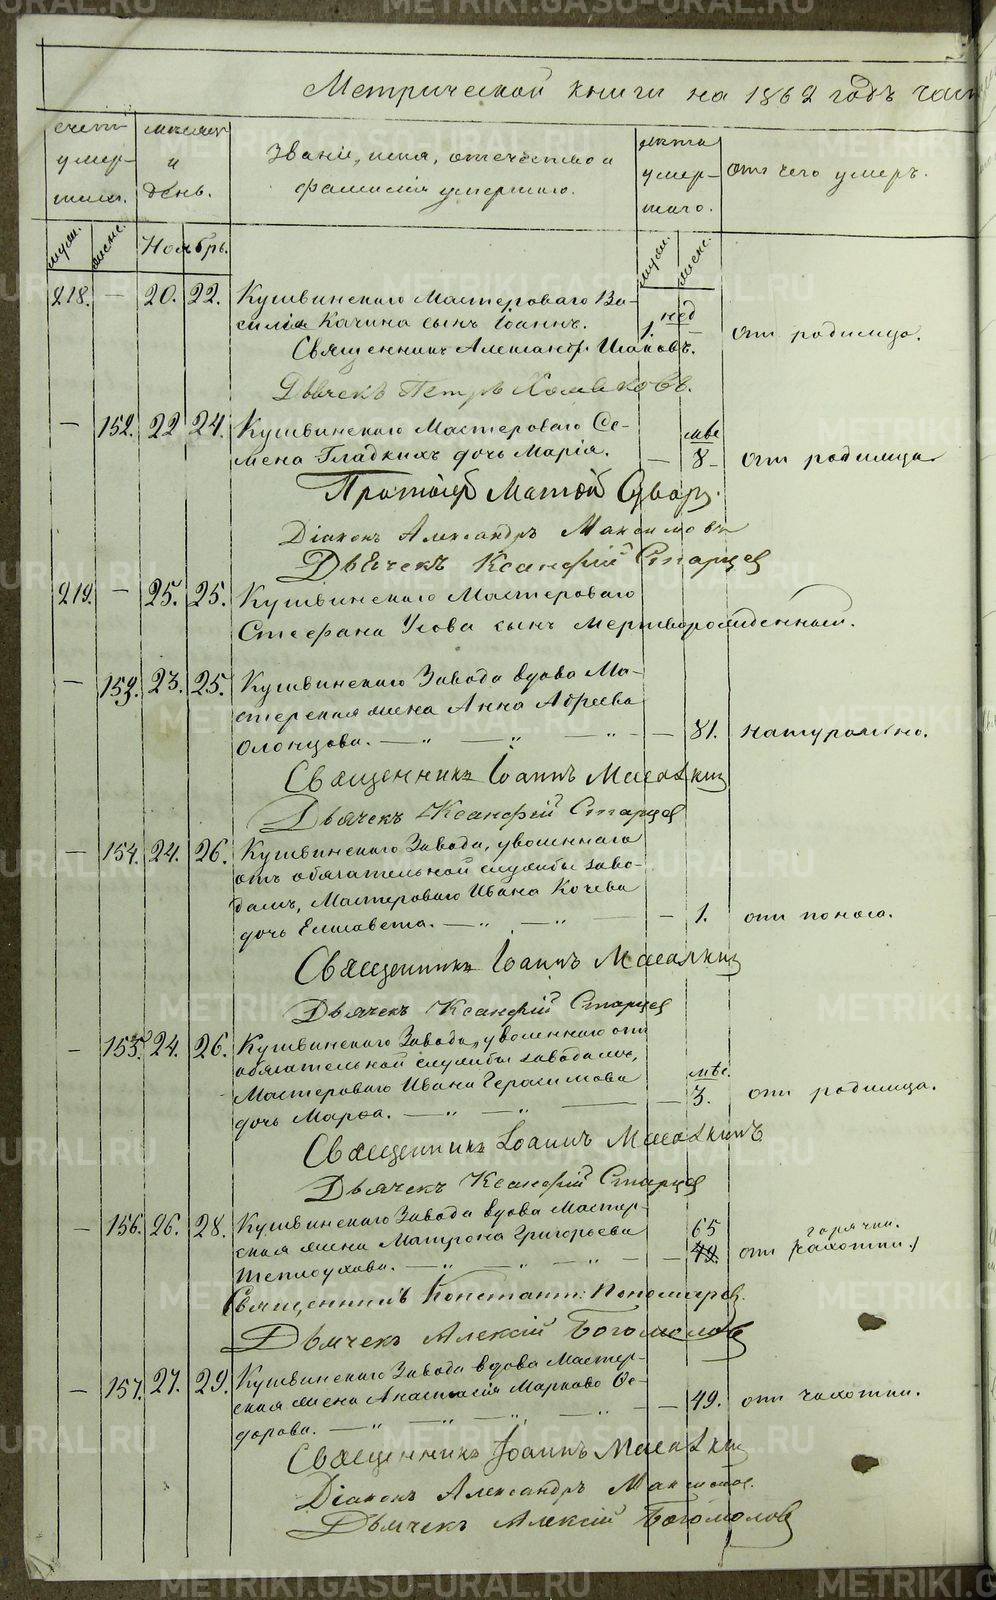 Метрической книги на 1862 годъ част
счетъ умер-
шихъ.
мѣсяцъ
и
день.
Званіе, имя, отечество и
фамилія умершаго.
лѣта
умер-
шаго.
отъ чего умеръ.
муж.
женс.
Ноябрь.
муж.
женс.
218. — 20. 22. Кушвинскаго Мастероваго Ва-
силія Качина сынъ Іоаннъ. 1. нед — отъ родимца.
Священникъ Александръ
Дьячекъ Петръ Хомяковъ.
— 152. 22 24. Кушвинскаго Мастероваго Се-
мена Гладкихъ дочь Марія. — мѣс 8 отъ родимца
Протоіерей
Діаконъ Александръ Максимовъ
Дьячекъ Ксанфій Старцев
219. — 25. 25. Кушвинскаго Мастероваго
Стефана Усова сынъ Мертворожденный.
— 153. 23. 25. Кушвинскаго Завода вдова Ма-
стерская жена Анна Абреева
Олонцова. — „ — „ — „ — — 81. натурально.
Священникъ Іоаннъ Масалкин
Дьячекъ Ксанфій Старцев
— 154. 24. 26. Кушвинскаго Завода, уволеннаго
отъ обязательной службы заво-
дамъ, Мастероваго Ивана Кочева
дочь Елисавета. — „ — „ — — 1. отъ поноса.
Священникъ Іоаннъ Масалкин
Дьячекъ Ксанфій Старцев
— 155. 24. 26. Кушвинскаго Завода, уволеннаго отъ
обязательной службы заводамъ,
Мастероваго Ивана Герасимова
дочь Марѳа. — „ — „ — — мѣс. 3. отъ родимца.
Священникъ Іоаннъ Масалкинъ
Дьячекъ Ксанфій Старцев
— 156. 26. 28. Кушвинскаго Завода вдова Мастер-
ская жена Матрона Григорьева
Теплоухова. — „ — „ — „ — — 65 49. отъ (чахотки.) горячки.
Священникъ Констант: Пономарев.
Дьячекъ Алексій Богомолов
— 157. 27. 29. Кушвинскаго Завода вдова Мастер-
ская жена Анастасія Маркова Ѳе-
дорова. — „ — „ — „ — „ — — 49. отъ чахотки.
Священникъ Іоаннъ Масалкин
Діаконъ Александръ Максимов.
Дьячекъ Алексій Богомолов
METRIKI.GASO-URAL.RU